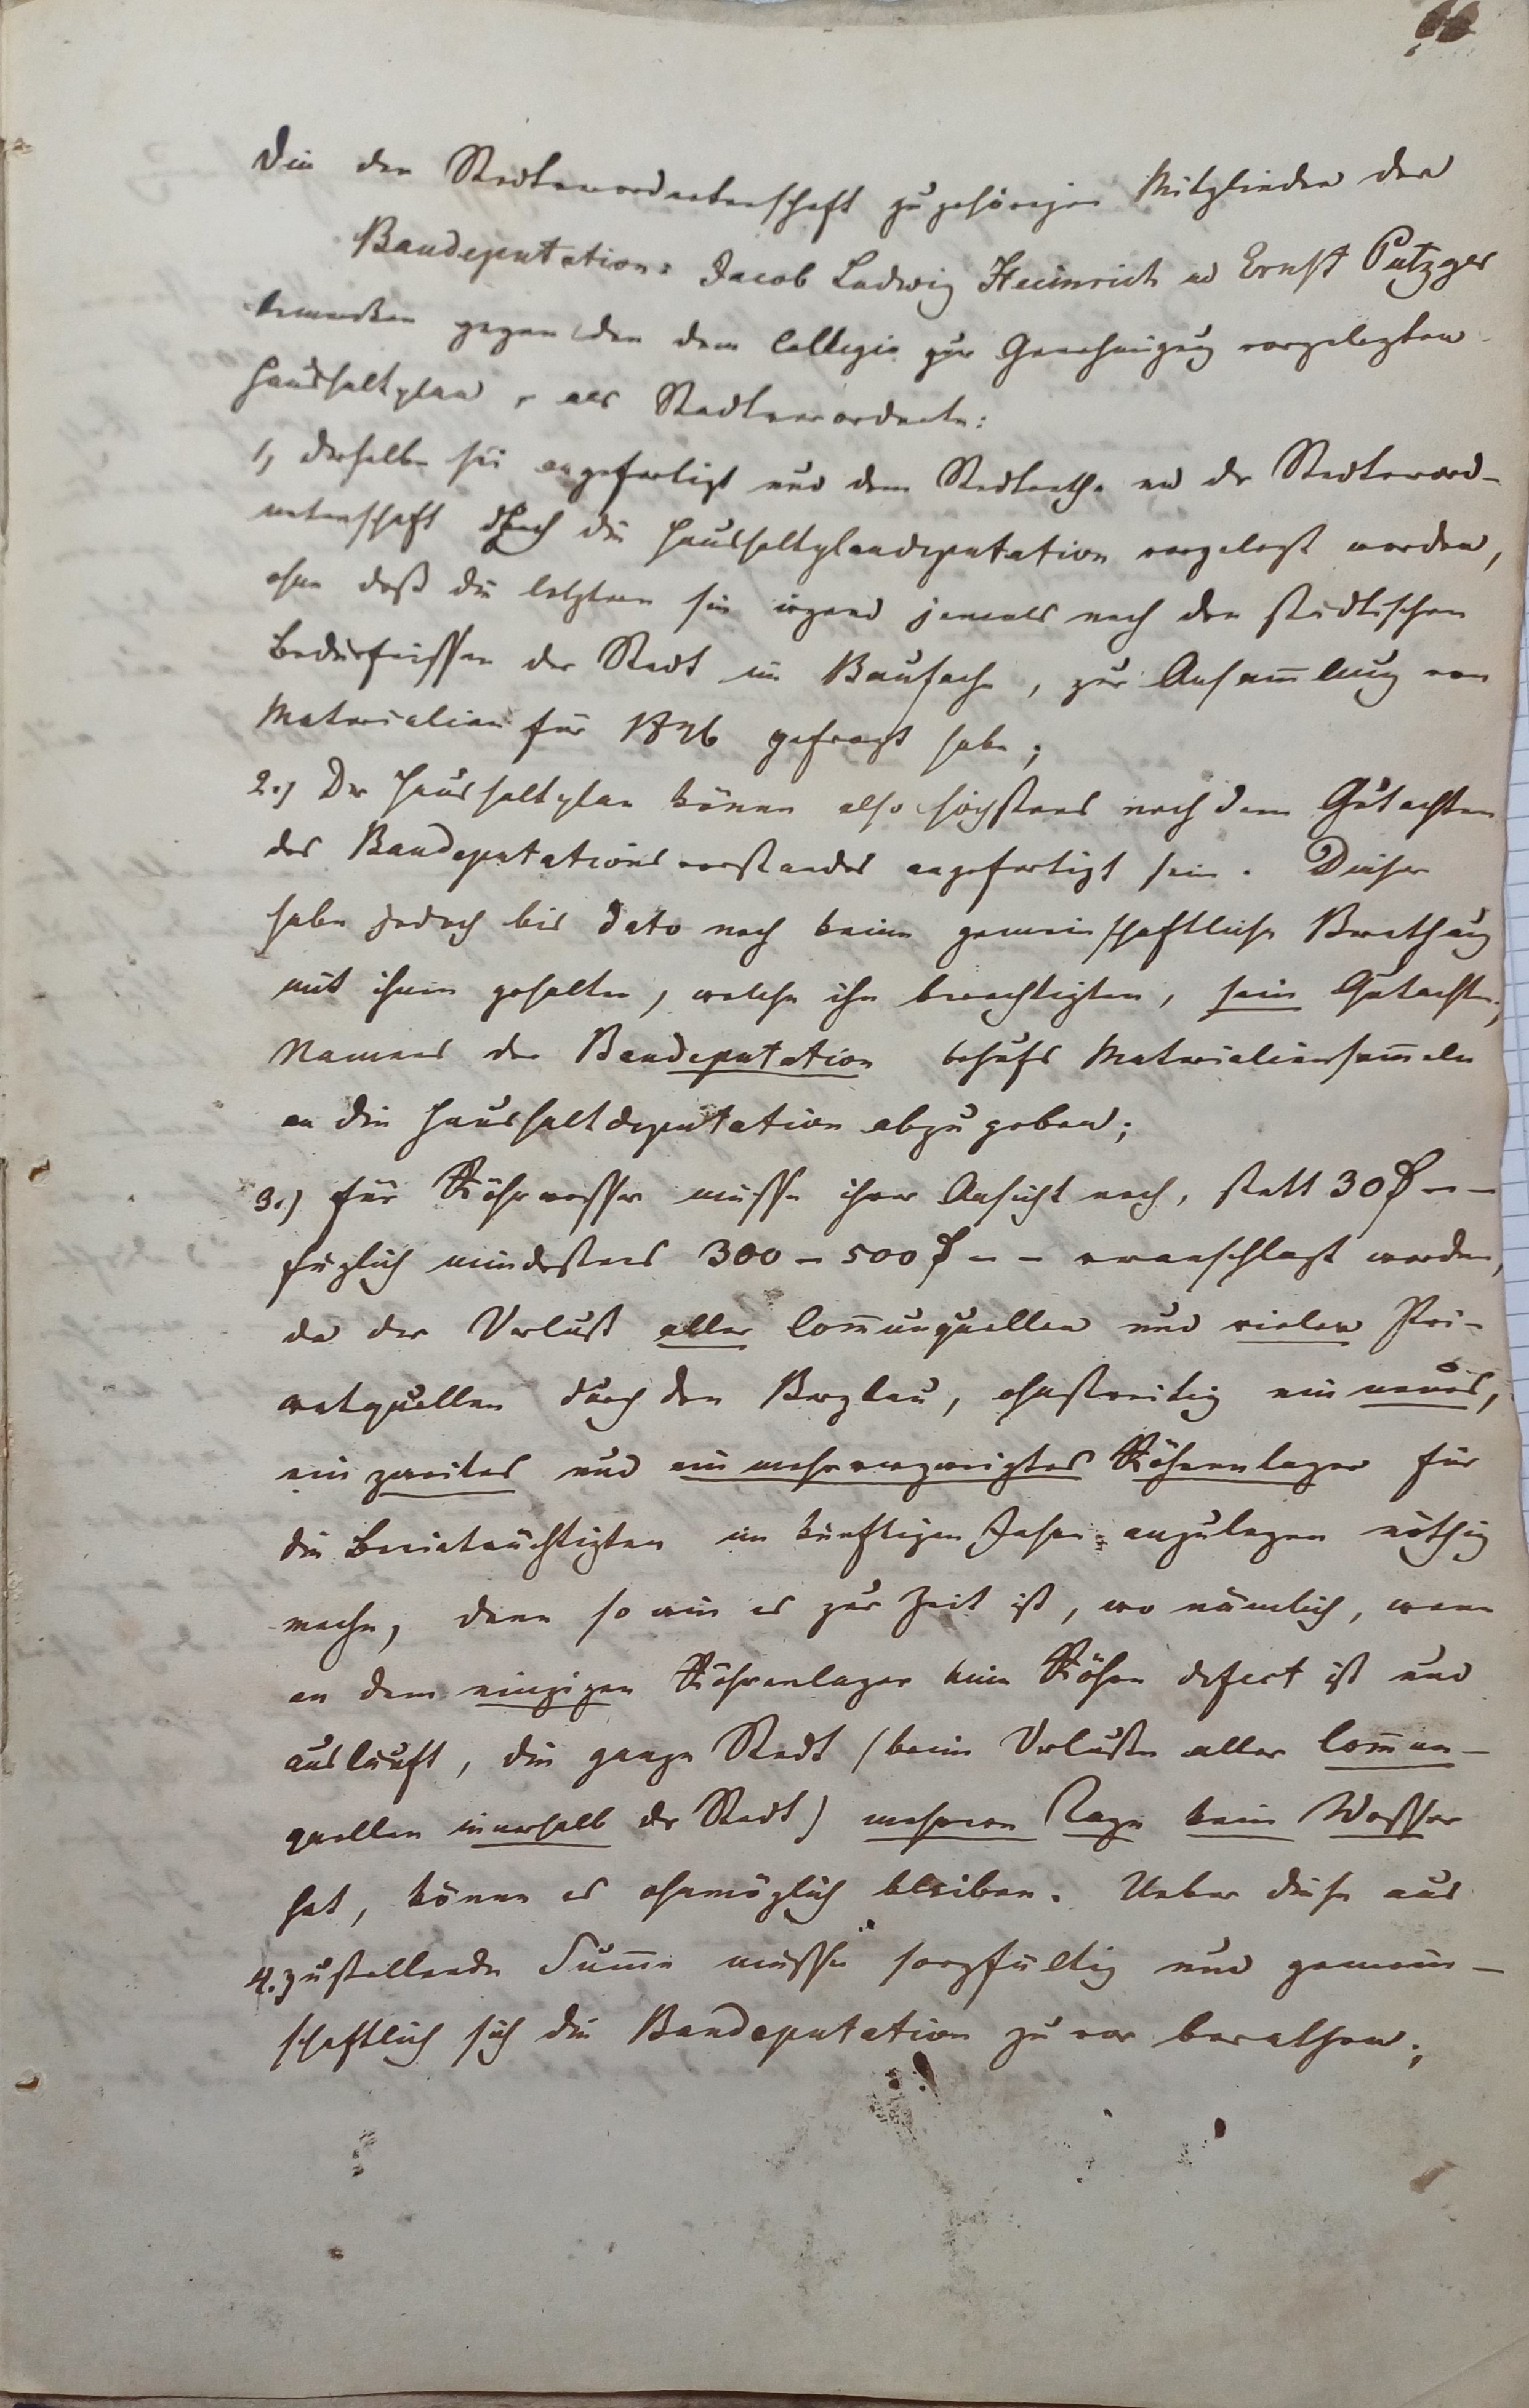 66
Die der Stadtverordnetenschaft zugehörigen Mitglieder der
Baudeputation: Jacob Ludwig Heinrich u Ernst Putzger
bemerken gegen den dem Collegio zur Genehmigung vorgelegten
Haushaltplan, als Stadtverordnete:
1, derselbe sei angefertigt und dem Stadtrathe und der Stadtverord-
netenschaft durch die Haushaltplandeputation vorgelegt worden,
ohne daß die letztere sie irgend jemals nach den städtischen
Bedürfnissen der Stadt im Baufache, zur Ansam̄lung von
Materialien für 1846 gefragt habe;
2.) Der Haushaltplan könne also höchstens nach dem Gutachten
des Baudeputationsvorstandes angefertigt sein. Dieser
habe jedoch bis dato noch keine gemeinschaftliche Berathung
mit ihnen gehalten, welche ihn berechtigten, sein Gutachten,
Namens der Baudeputation behufs Materialiensam̄eln
an die Haushaltdeputation abzugeben;
3.) für Röhrwasser müsse ihrer Ansicht nach, statt 30 ₰ – –
füglich mindestens 300 – 500 ₰ – – veranschlagt werden,
da der Verlust aller Com̄unquellen und vieler Pri-
vatquellen durch den Bergbau, ohnstreitig ein neues,
ein zweites und ein mehrverzweigtes Röhrenlager für
die Beeinträchtigten im künftigen Jahre anzulegen nöthig
mache, denn so wie es zur Zeit ist, wo nämlich, wenn
an dem einzigen Röhrenlager eine Röhre defect ist und
ausläuft, die ganze Stadt (beim Verluste aller Com̄un-
quellen innerhalb der Stadt) mehrere Tage kein Wasser
hat, könne es ohnmöglich bleiben. Ueber diese aus
4. zustellende Sum̄e müsse sorgfältig und gemein-
schaftlich sich die Baudeputation zuvor berathen;